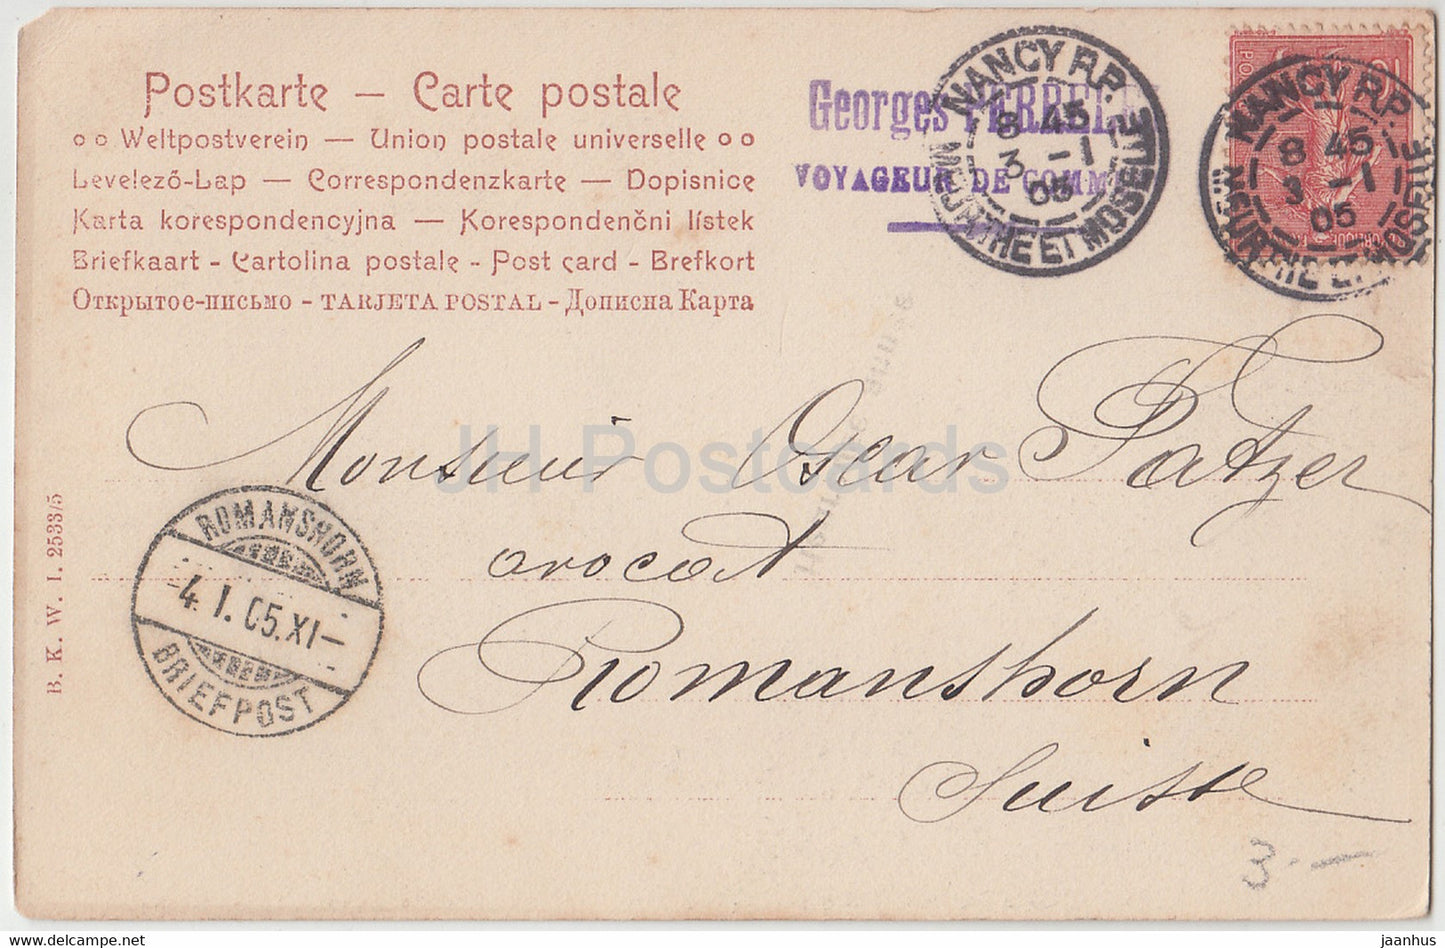 Postkarte – Carte postale
o o Weltpostverein — Union postale universelle o o
Levelező-Lap — Correspondenzkarte — Dopisnice
Karta korespondencyjna — Korespondenčni lístek
Briefkaart - Cartolina postale - Post card - Brefkort
Открытое-письмо - TARJETA POSTAL - Дописна Карта
Georges
VOYAGEUR DE COMM
NANCY R.P.
8 45
3 -1
05
MEURTHE ET MOSELLE
NANCY R.P.
8 45
3 -1
05
MEURTHE ET MOSELLE
Monsieur Oscar Patzer
avocat
Romanshorn
Suisse
ROMANSHORN
-4.I.05.XI-
BRIEFPOST
B. K. W. I. 2533/5
3.—
JH Postcards
jaanhus @ www.jhpostcards.com